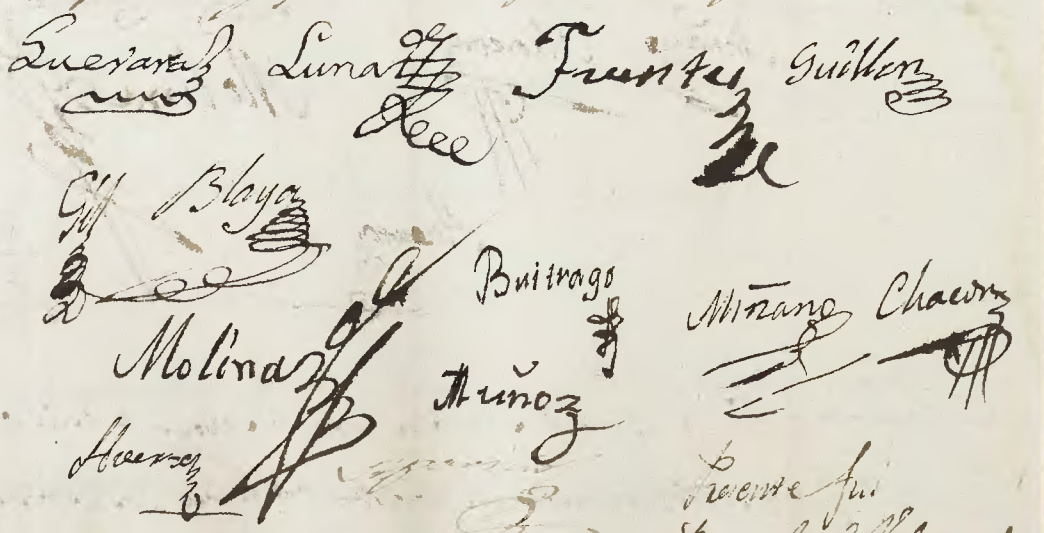 Guevara Luna Fuentes Guillen
Gil Blaya
Buitrago Miñano Chacon
Molina Muñoz
Presente fui